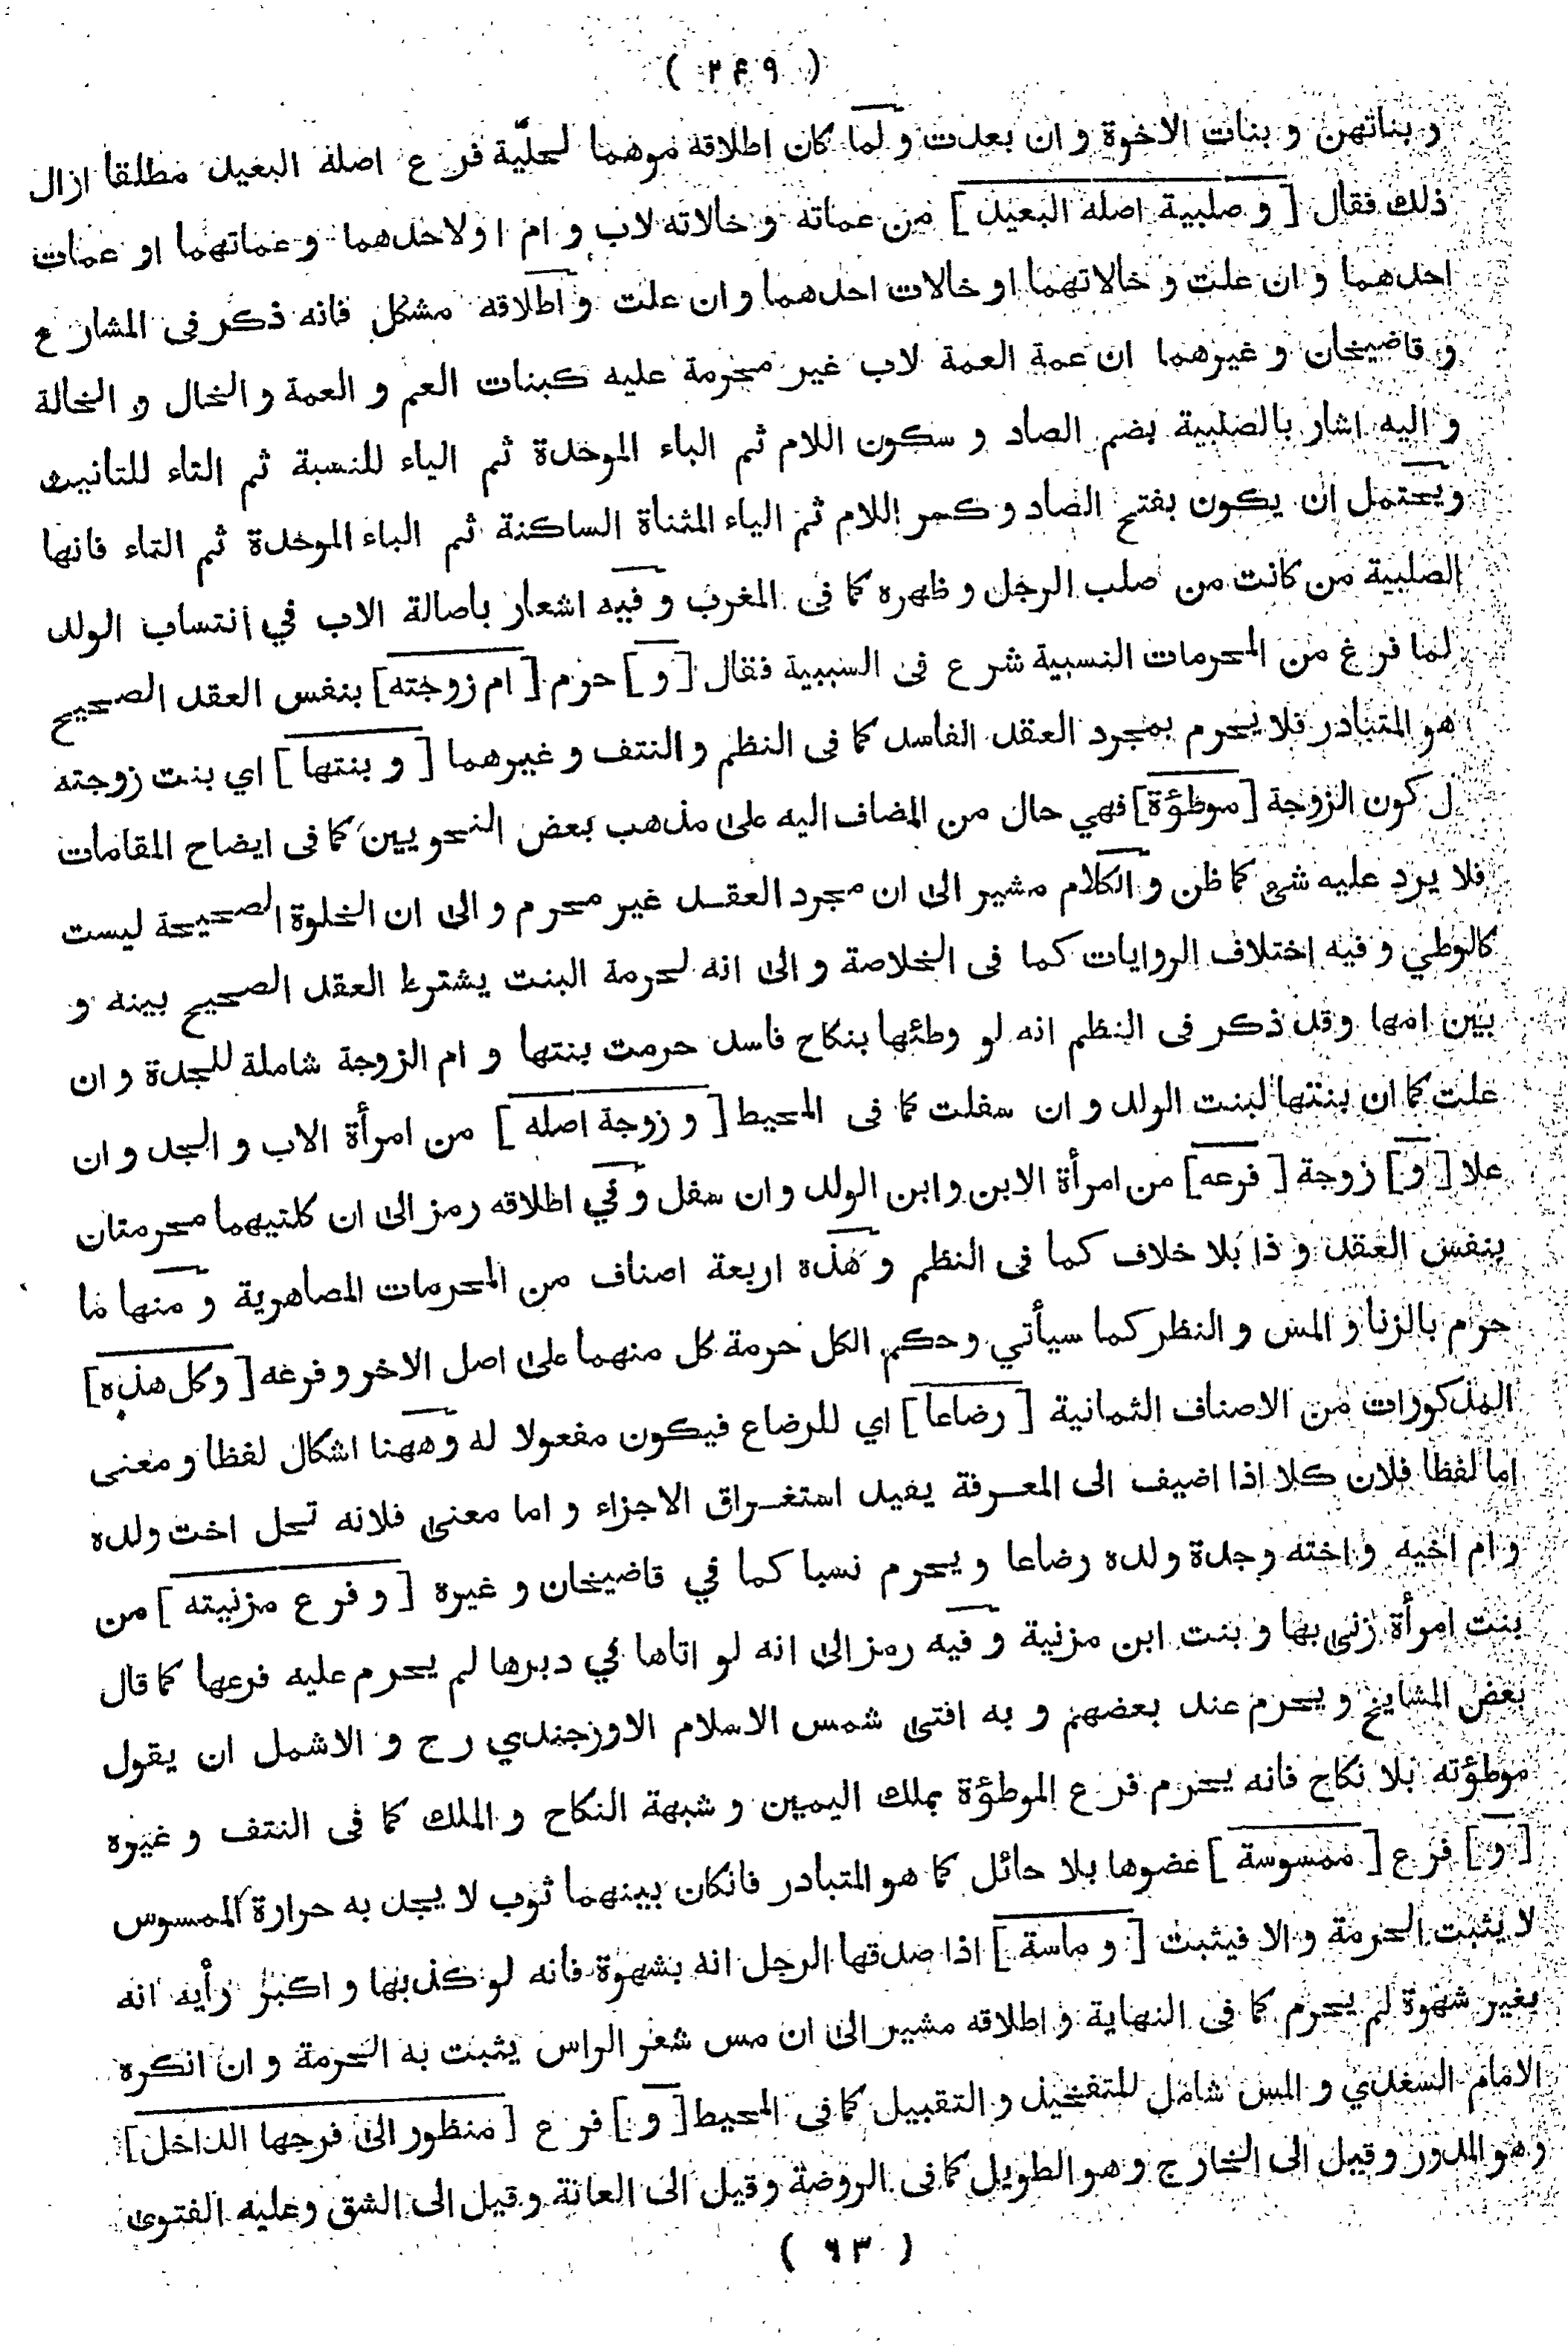 ( ٢٤٩ )
و بناتهن و بنات الاخوة و ان بعدت و لما كان اطلاقه موهما لحلية فرع اصله البعيد مطلقا ازال
ذلك فقال [ و صلبية اصله البعيد ] من عماته و خالاته لاب و ام او لاحدهما و عماتهما او عمات
احدهما و ان علت و خالاتهما او خالات احدهما و ان علت و اطلاقه مشكل فانه ذكر فى المشارع
و قاضيخان و غيرهما ان عمة العمة لاب غير محرمة عليه كبنات العم و العمة و الخال و الخالة
و اليه اشار بالصلبية بضم الصاد و سكون اللام ثم الباء الموحدة ثم الياء للنسبة ثم التاء للتانيث
ويحتمل ان يكون بفتح الصاد و كسر اللام ثم الياء المثناة الساكنة ثم الباء الموحدة ثم التاء فانها
الصلبية من كانت من صلب الرجل و ظهره كما فى المغرب و فيه اشعار باصالة الاب في انتساب الولد
لما فرغ من المحرمات النسبية شرع فى السببية فقال [ و ] حرم [ ام زوجته ] بنفس العقد الصحيح
هو المتبادر فلا يحرم بمجرد العقد الفاسد كما فى النظم و النتف و غيرهما [ و بنتها ] اي بنت زوجته
ل كون الزوجة [ موطؤة ] فهي حال من المضاف اليه على مذهب بعض النحويين كما فى ايضاح المقامات
فلا يرد عليه شئ كما ظن و الكلام مشير الى ان مجرد العقد غير محرم و الى ان الخلوة الصحيحة ليست
كالوطي و فيه اختلاف الروايات كما فى الخلاصة و الى انه لحرمة البنت يشترط العقد الصحيح بينه و
بين امها و قد ذكر فى النظم انه لو وطئها بنكاح فاسد حرمت بنتها و ام الزوجة شاملة للجدة و ان
علت كما ان بنتها لبنت الولد و ان سفلت كما فى المحيط [ و زوجة اصله ] من امرأة الاب و الجد و ان
علا [ و ] زوجة [ فرعه ] من امرأة الابن و ابن الولد و ان سفل و في اطلاقه رمز الى ان كلتيهما محرمتان
بنفس العقد و ذا بلا خلاف كما فى النظم و هذه اربعة اصناف من المحرمات المصاهرية و منها ما
حرم بالزنا و المس و النظر كما سيأتي و حكم الكل حرمة كل منهما على اصل الاخر و فرعه [ و كل هذه ]
المذكورات من الاصناف الثمانية [ رضاعا ] اي للرضاع فيكون مفعولا له و ههنا اشكال لفظا و معنى
اما لفظا فلان كلا اذا اضيف الى المعرفة يفيد استغراق الاجزاء و اما معنى فلانه تحل اخت ولده
و ام اخيه و اخته و جدة ولده رضاعا و يحرم نسبا كما في قاضيخان و غيره [ و فرع مزنيته ] من
بنت امرأة زنى بها و بنت ابن مزنية و فيه رمز الى انه لو اتاها في دبرها لم يحرم عليه فرعها كما قال
بعض المشايخ و يحرم عند بعضهم و به افتى شمس الاسلام الاوزجندي رح و الاشمل ان يقول
موطؤته بلا نكاح فانه يحرم فرع الموطؤة بملك اليمين و شبهة النكاح و الملك كما فى النتف و غيره
[ و ] فرع [ ممسوسة ] عضوها بلا حائل كما هو المتبادر فانكان بينهما ثوب لا يجد به حرارة الممسوس
لا يثبت الحرمة و الا فيثبت [ و ماسة ] اذا صدقها الرجل انه بشهوة فانه لو كذبها و اكبر رأيه انه
بغير شهوة لم يحرم كما فى النهاية و اطلاقه مشير الى ان مس شعر الراس يثبت به الحرمة و ان انكره
الامام السغدي و المس شامل للتفخيذ و التقبيل كما فى المحيط [ و ] فرع [ منظور الى فرجها الداخل ]
و هو المدور و قيل الى الخارج و هو الطويل كما فى الروضة و قيل الى العانة و قيل الى الشق و عليه الفتوى
( ٦٣ )